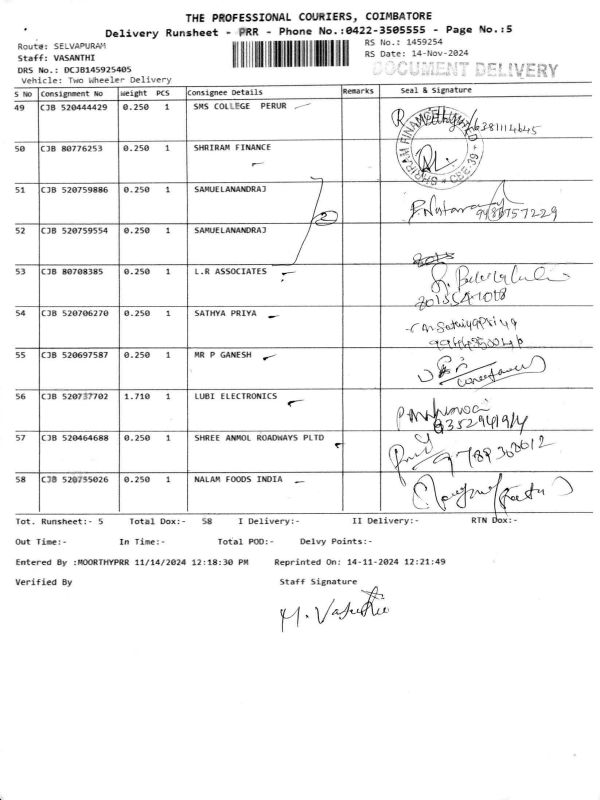 THE PROFESSIONAL COURIERS, COIMBATORE
Delivery Runsheet - PRR - Phone No.:0422-3505555 - Page No.:5
Route: SELVAPURAM
RS No.: 1459254
Staff: VASANTHI
RS Date: 14-Nov-2024
DRS No.: DCJB145925405
DOCUMENT DELIVERY
Vehicle: Two Wheeler Delivery
S No Consignment No Weight PCS Consignee Details Remarks Seal & Signature
49 CJB 520444429 0.250 1 SMS COLLEGE PERUR
50 CJB 80776253 0.250 1 SHRIRAM FINANCE
SHRIRAM FINANCE
51 CJB 520759886 0.250 1 SAMUELANANDRAJ
2
52 CJB 520759554 0.250 1 SAMUELANANDRAJ
53 CJB 80708385 0.250 1 L.R ASSOCIATES
54 CJB 520706270 0.250 1 SATHYA PRIYA
55 CJB 520697587 0.250 1 MR P GANESH
56 CJB 520737702 1.710 1 LUBI ELECTRONICS
57 CJB 520464688 0.250 1 SHREE ANMOL ROADWAYS PLTD
9789300612
58 CJB 520755026 0.250 1 NALAM FOODS INDIA
Tot. Runsheet:- 5 Total Dox:- 58 I Delivery:- II Delivery:- RTN Dox:-
Out Time:- In Time:- Total POD:- Delvy Points:-
Entered By :MOORTHYPRR 11/14/2024 12:18:30 PM Reprinted On: 14-11-2024 12:21:49
Verified By Staff Signature